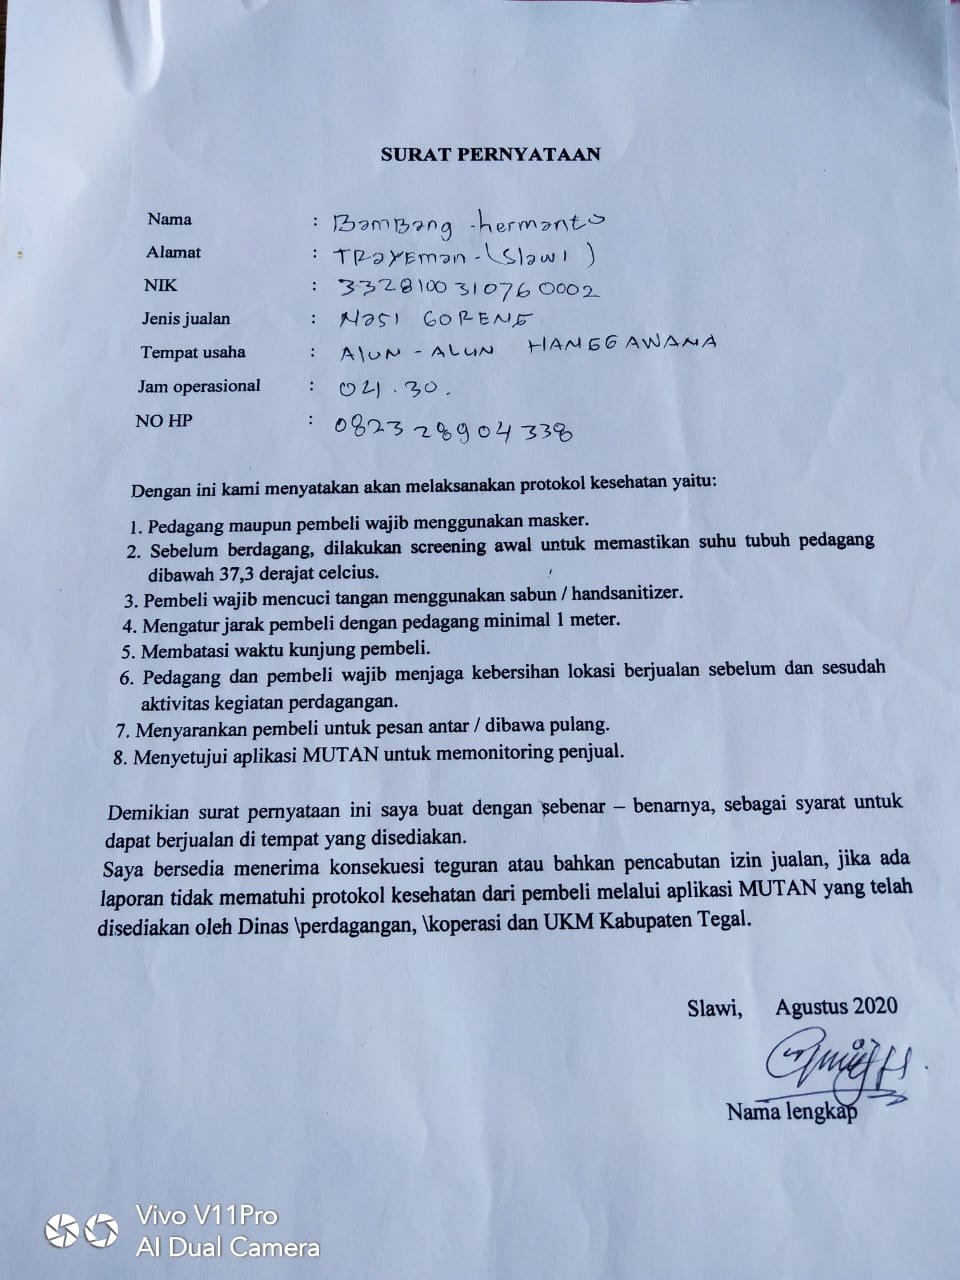 SURAT PERNYATAAN
Nama : Bambang hermanto
Alamat : TRAYEMAN - (Slawi)
NIK : 3328100310760002
Jenis jualan : NASI GORENG
Tempat usaha : AlUN - ALUN HANGGAWANA
Jam operasional : 04.30.
NO HP : 082328904338
Dengan ini kami menyatakan akan melaksanakan protokol kesehatan yaitu:
1. Pedagang maupun pembeli wajib menggunakan masker.
2. Sebelum berdagang, dilakukan screening awal untuk memastikan suhu tubuh pedagang
dibawah 37,3 derajat celcius.
3. Pembeli wajib mencuci tangan menggunakan sabun / handsanitizer.
4. Mengatur jarak pembeli dengan pedagang minimal 1 meter.
5. Membatasi waktu kunjung pembeli.
6. Pedagang dan pembeli wajib menjaga kebersihan lokasi berjualan sebelum dan sesudah
aktivitas kegiatan perdagangan.
7. Menyarankan pembeli untuk pesan antar / dibawa pulang.
8. Menyetujui aplikasi MUTAN untuk memonitoring penjual.
Demikian surat pernyataan ini saya buat dengan sebenar – benarnya, sebagai syarat untuk
dapat berjualan di tempat yang disediakan.
Saya bersedia menerima konsekuesi teguran atau bahkan pencabutan izin jualan, jika ada
laporan tidak mematuhi protokol kesehatan dari pembeli melalui aplikasi MUTAN yang telah
disediakan oleh Dinas \perdagangan, \koperasi dan UKM Kabupaten Tegal.
Slawi, Agustus 2020
Nama lengkap
Vivo V11Pro
AI Dual Camera